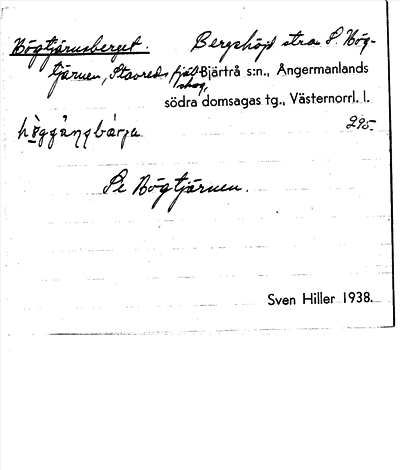 Högtjärnsberget. Bergshöjd strax S. Hög-
tjärnen, Stavreds fjäll- Bjärtrå s:n., Ångermanlands
skog, södra domsagas tg., Västernorrl. l.
295-
Se Högtjärnen.
Sven Hiller 1938.